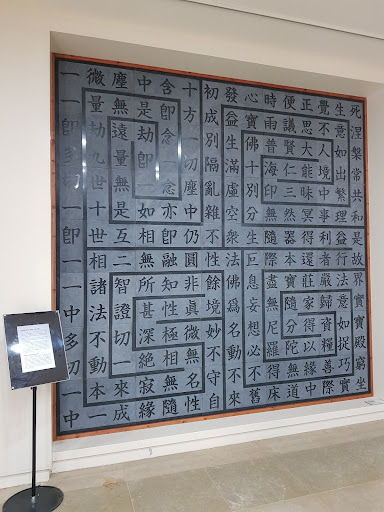 一微塵中含十初發心時便正覺生死
一量無是卽方成益寶雨議思不意涅
卽劫遠劫念一別生佛普賢大人如槃
多九量卽一切隔滿十海仁能境出常
切世無一念塵亂虛別印三昧中繁共
卽十是如亦中雜空分無然冥事理和
一世互相卽仍不衆生隨器得利益是
一相二無融圓性法叵際本還者行故
一諸智所知非餘佛息盡寶莊嚴法界
中法證甚性眞境爲妄無隨家歸意實
多不切深極微妙名想尼分得資如寶
切動一絶相無不動必羅陀以糧捉殿
一本來寂無名守不不得無緣善巧窮
中一成緣隨性自來舊床道中際實坐